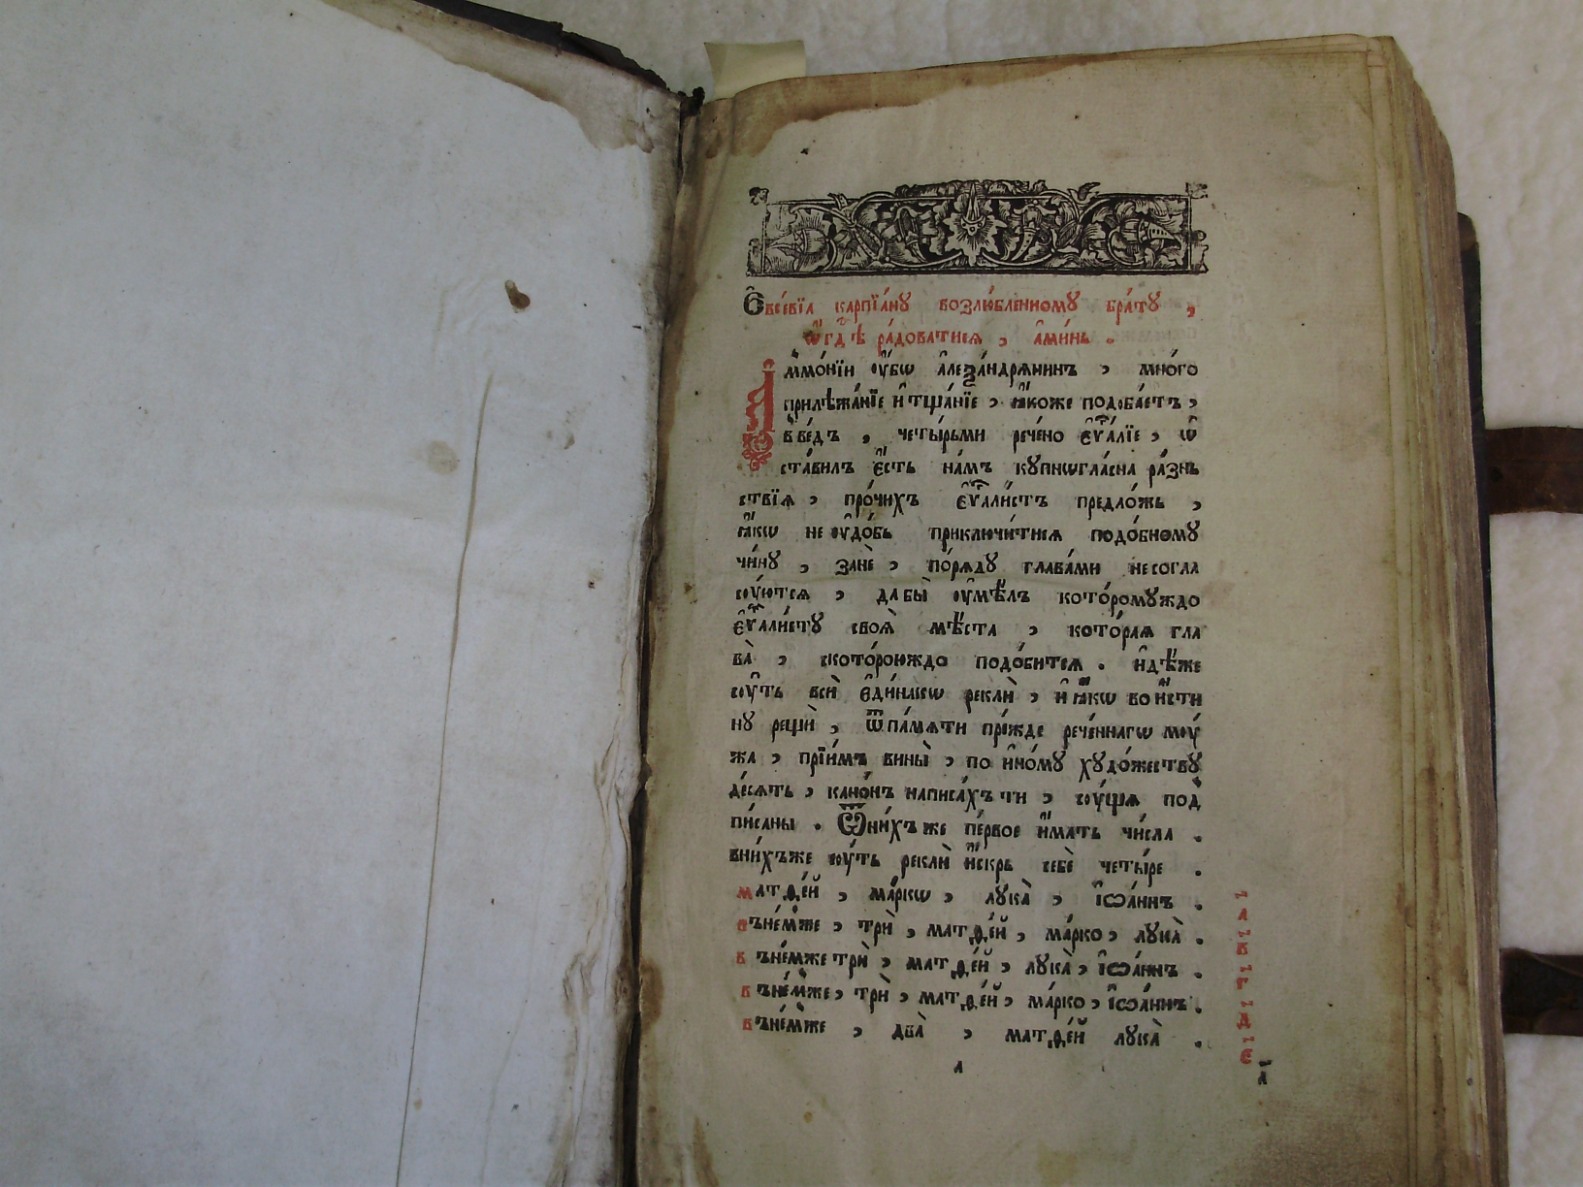 Є҆ве́вїа карпїа́нꙋ возлю́бленномꙋ бра́тꙋ ,
ѡ҆ гдⷭ҇ѣ ра́доватисѧ , а҆ми́нь .
А҆ммо́нїи ᲂу҆́бѡ а҆леѯа́ндрѧнинъ , мно́го
прилѣжа́нїе и҆ тща́нїе , ꙗ҆́коже подоба́етъ ,
вве́дъ , четы́рьми рече́но є҆ѵⷢ҇а́лїе , ѡ҆
ста́вилъ є҆́сть на́мъ кꙋпноѡгла́сна ра́знь
ствїѧ , про́чихъ є҆ѵⷢ҇али́стъ предло́жь ,
ꙗ҆́кѡ не ᲂу҆до́бь приключи́тисѧ подо́бномꙋ
чи́нꙋ , занѐ , по́рѧдꙋ глава́ми несогла
сꙋ́ютсѧ , да бы̀ ᲂу҆мѣ́лъ кото́ромꙋждо
є҆ѵⷢ҇али́стꙋ своѧ̀ мѣ́ста , кото́раѧ гла
ва̀ , ското́роюждо подо́битсѧ . и҆дѣ́же
сꙋ́ть всѝ є҆ди́накѡ реклѝ , и҆ ꙗ҆́кѡ во и҆́сти
нꙋ рещѝ , ѿ па́мѧти пре́жде рече́ннагѡ мꙋ́
жа , прїи́мъ вины̀ , по и҆но́мꙋ хꙋдо́жествꙋ
де́сѧть , кано́нъ написа́хъ ти , сꙋ́щѧ под̾
пи́саны . Ѿни́хъ же пе́рвое и҆́мать чи́сла .
вни́хъже сꙋ́ть реклѝ и҆́скрь себѐ четы́ре .
матѳе́й , ма́ркѡ , лꙋка̀ , і҆ѡа́ннъ .
въне́мже , трѝ , матѳе́й , ма́рко , лꙋка̀ .
въне́мже трѝ , матѳе́й , лꙋка̀ , і҆ѡа́ннъ .
въне́мже , трѝ , матѳе́й , ма́рко , і҆ѡа́ннъ .
въне́мже , два̀ , матѳе́й лꙋка̀ .
а҃